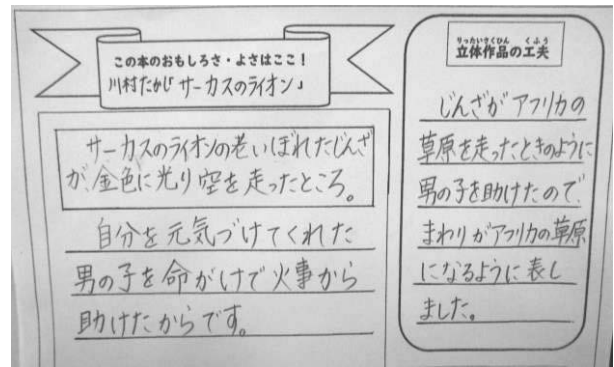 この本のおもしろさ・よさはここ！
川村たかし『サーカスのライオン』
サーカスのライオンの老いぼれたじんざ
が、金色に光り空を走ったところ。
自分を元気づけてくれた
男の子を命がけで火事から
助けたからです。
りったいさくひん くふう
立体作品の工夫
じんざがアフリカの
草原を走ったときのように
男の子を助けたので、
まわりがアフリカの草原
になるように表し
ました。